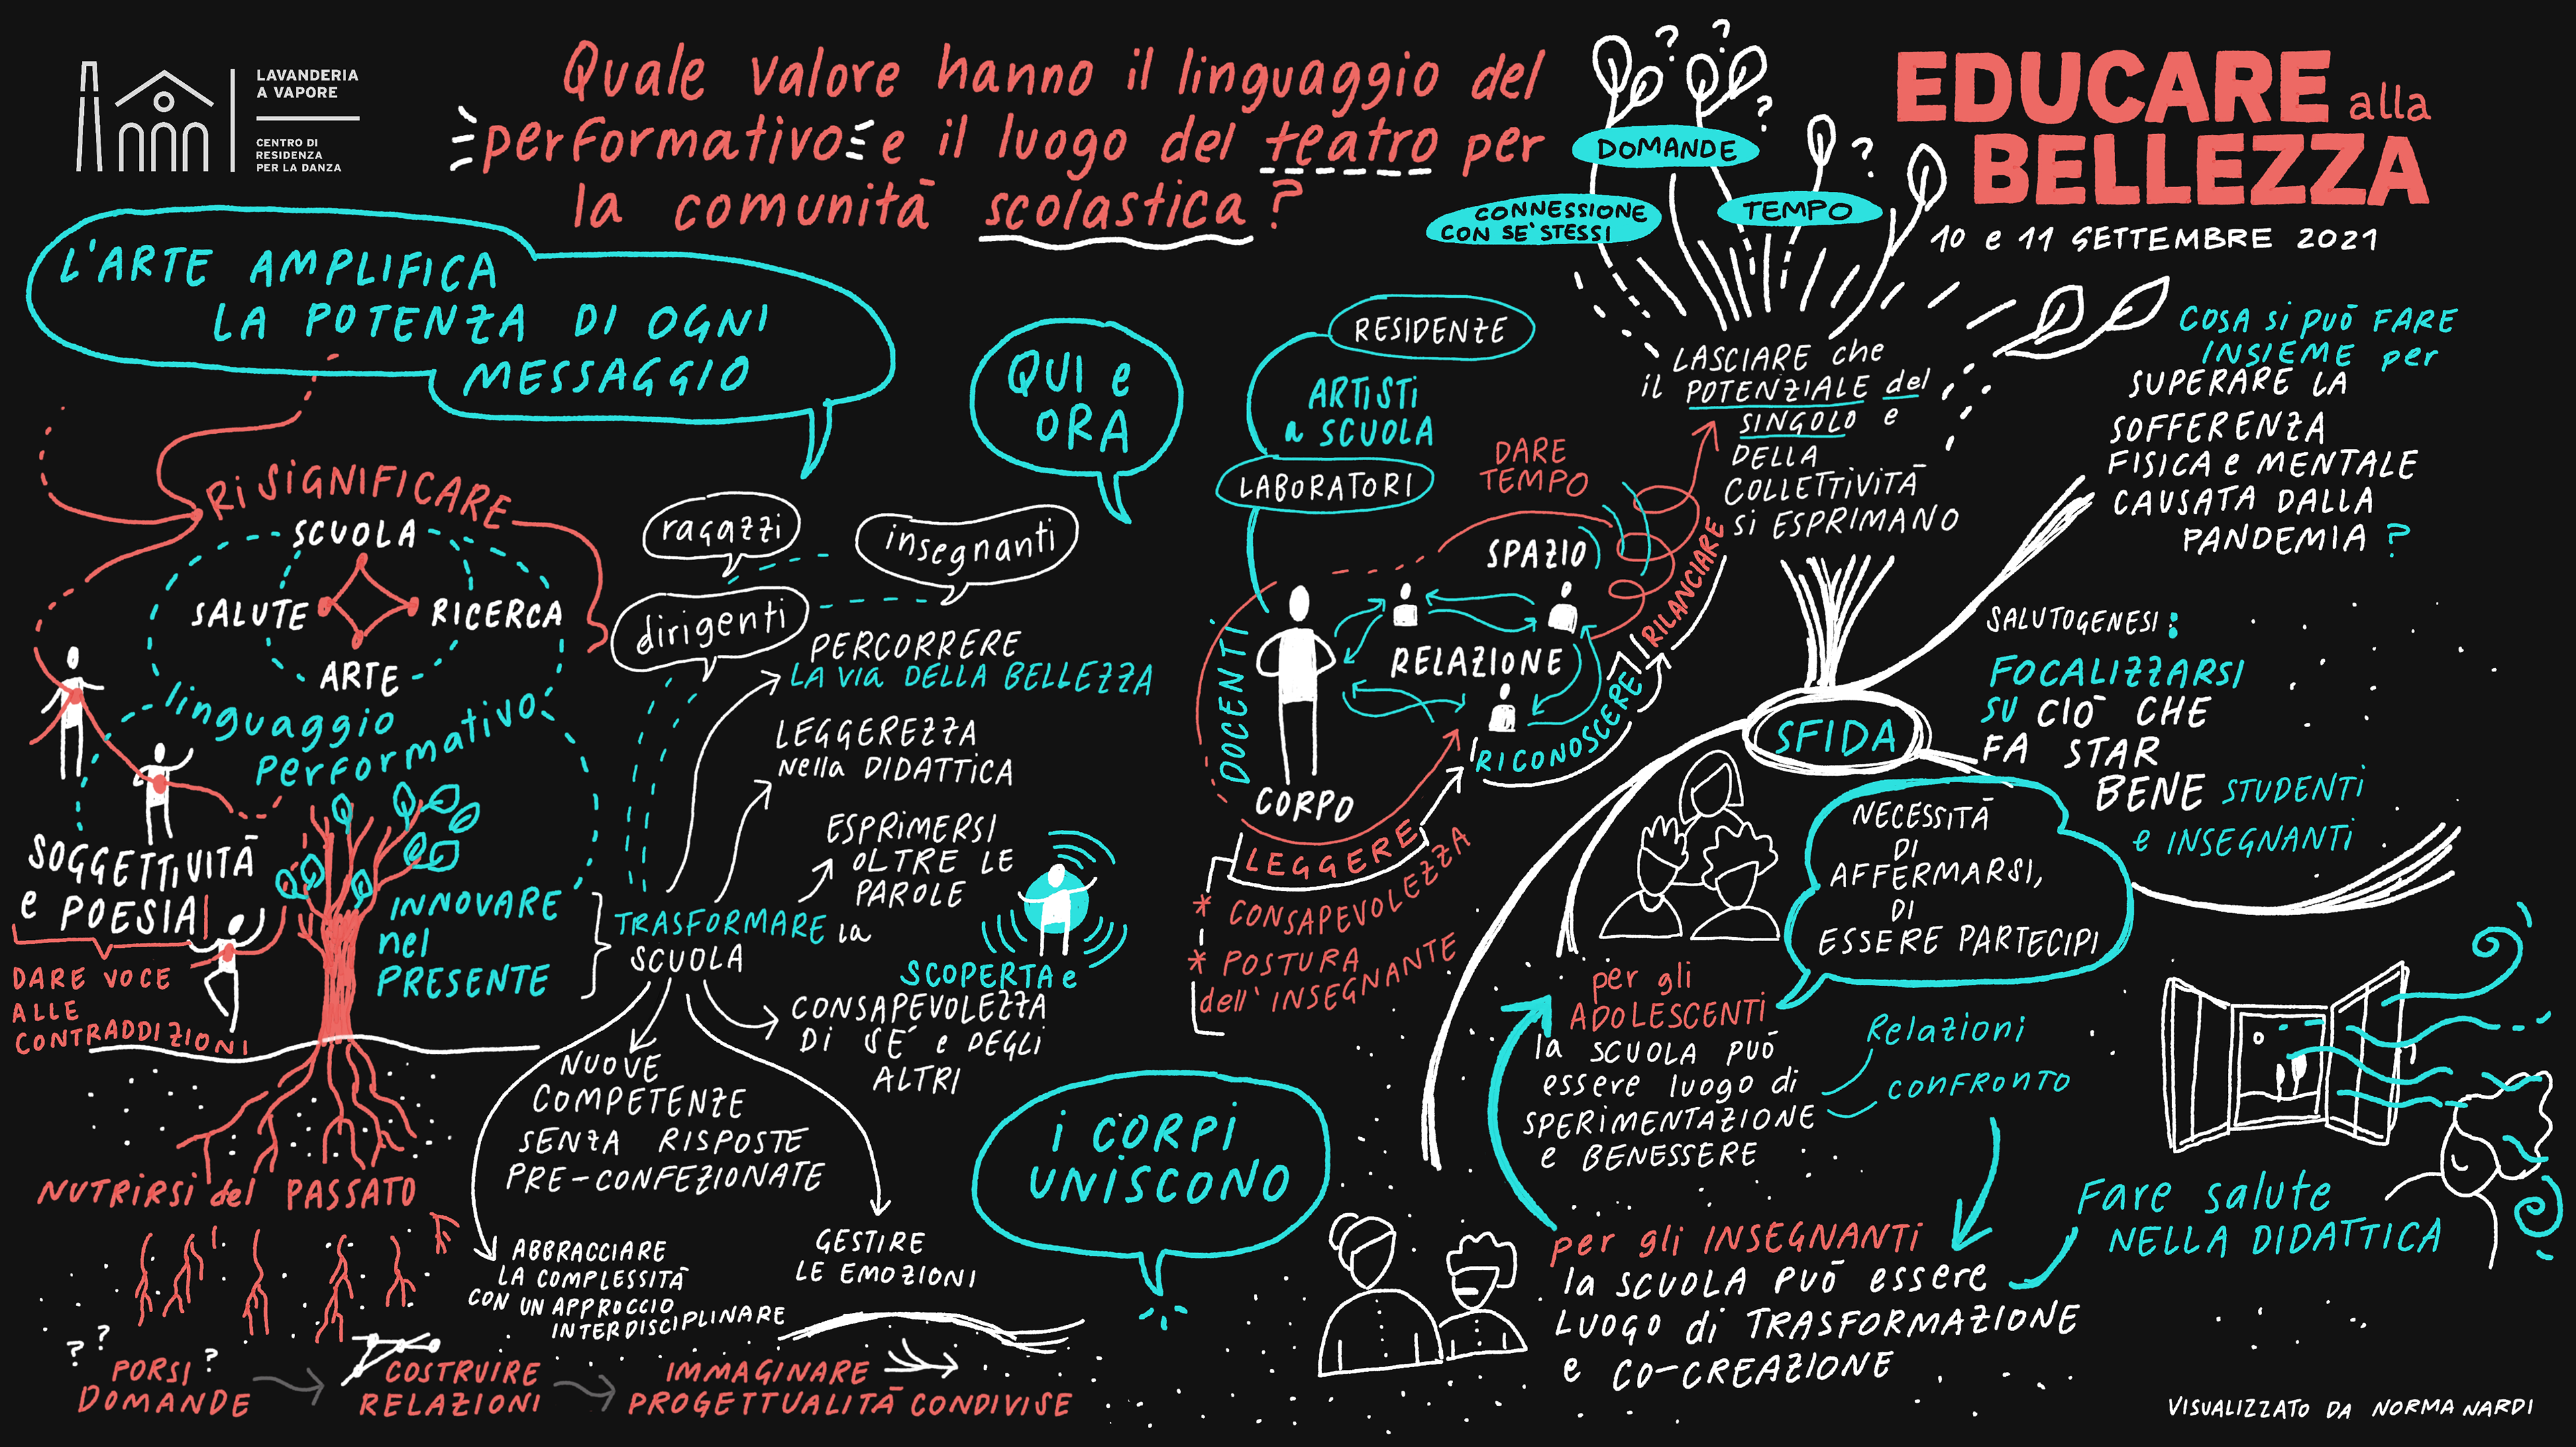 LAVANDERIA
A VAPORE
CENTRO DI
RESIDENZA
PER LA DANZA
Quale valore hanno il linguaggio del
performativo e il luogo del teatro per
la comunità scolastica?
EDUCARE alla
BELLEZZA
10 e 11 SETTEMBRE 2021
L'ARTE AMPLIFICA
LA POTENZA DI OGNI
MESSAGGIO
RiSiGNIFICARE
SCUOLA
SALUTE
RICERCA
ARTE
linguaggio
performativo
SOGGETTIVITÀ
e POESIA
DARE VOCE
ALLE
CONTRADDIZIONI
INNOVARE
nel
PRESENTE
NUTRIRSI del PASSATO
? ?
PORSI ?
DOMANDE
COSTRUIRE
RELAZIONI
IMMAGINARE
PROGETTUALITÀ CONDIVISE
ragazzi
insegnanti
dirigenti
PERCORRERE
LA VIA DELLA BELLEZZA
LEGGEREZZA
nella DIDATTICA
ESPRIMERSI
OLTRE LE
PAROLE
TRASFORMARE la
SCUOLA
SCOPERTA e
CONSAPEVOLEZZA
Di SÉ e DEGLI
ALTRI
NUOVE
COMPETENZE
SENZA RISPOSTE
PRE-CONFEZIONATE
ABBRACCIARE
LA COMPLESSITÀ
CON UN APPROCCIO
INTERDISCIPLINARE
GESTIRE
LE EMOZIONI
QUI e
ORA
RESIDENZE
ARTISTI
a SCUOLA
LABORATORI
DOCENTI
CORPO
SPAZIO
RELAZIONE
DARE
TEMPO
LEGGERE
RICONOSCERE
RILANCIARE
* CONSAPEVOLEZZA
* POSTURA
dell'INSEGNANTE
i CORPI
UNISCONO
? ? ? ?
DOMANDE
CONNESSIONE
CON SE' STESSI
TEMPO
LASCIARE che
il POTENZIALE del
SINGOLO e
DELLA
COLLETTIVITÀ
Si ESPRIMANO
SFIDA
COSA Si PUÒ FARE
INSIEME per
SUPERARE LA
SOFFERENZA
FISICA e MENTALE
CAUSATA DALLA
PANDEMIA ?
SALUTOGENESI :
FOCALIZZARSI
SU CIÒ CHE
FA STAR
BENE STUDENTI
e INSEGNANTI
NECESSITÀ
DI
AFFERMARSI,
DI
ESSERE PARTECIPI
per gli
ADOLESCENTI
la SCUOLA PUÒ
essere luogo di
SPERIMENTAZIONE
e BENESSERE
Relazioni
CONFRONTO
per gli INSEGNANTI
la SCUOLA PUÒ essere
LUOGO di TRASFORMAZIONE
e CO-CREAZIONE
Fare salute
NELLA DIDATTICA
VISUALIZZATO DA NORMA NARDI